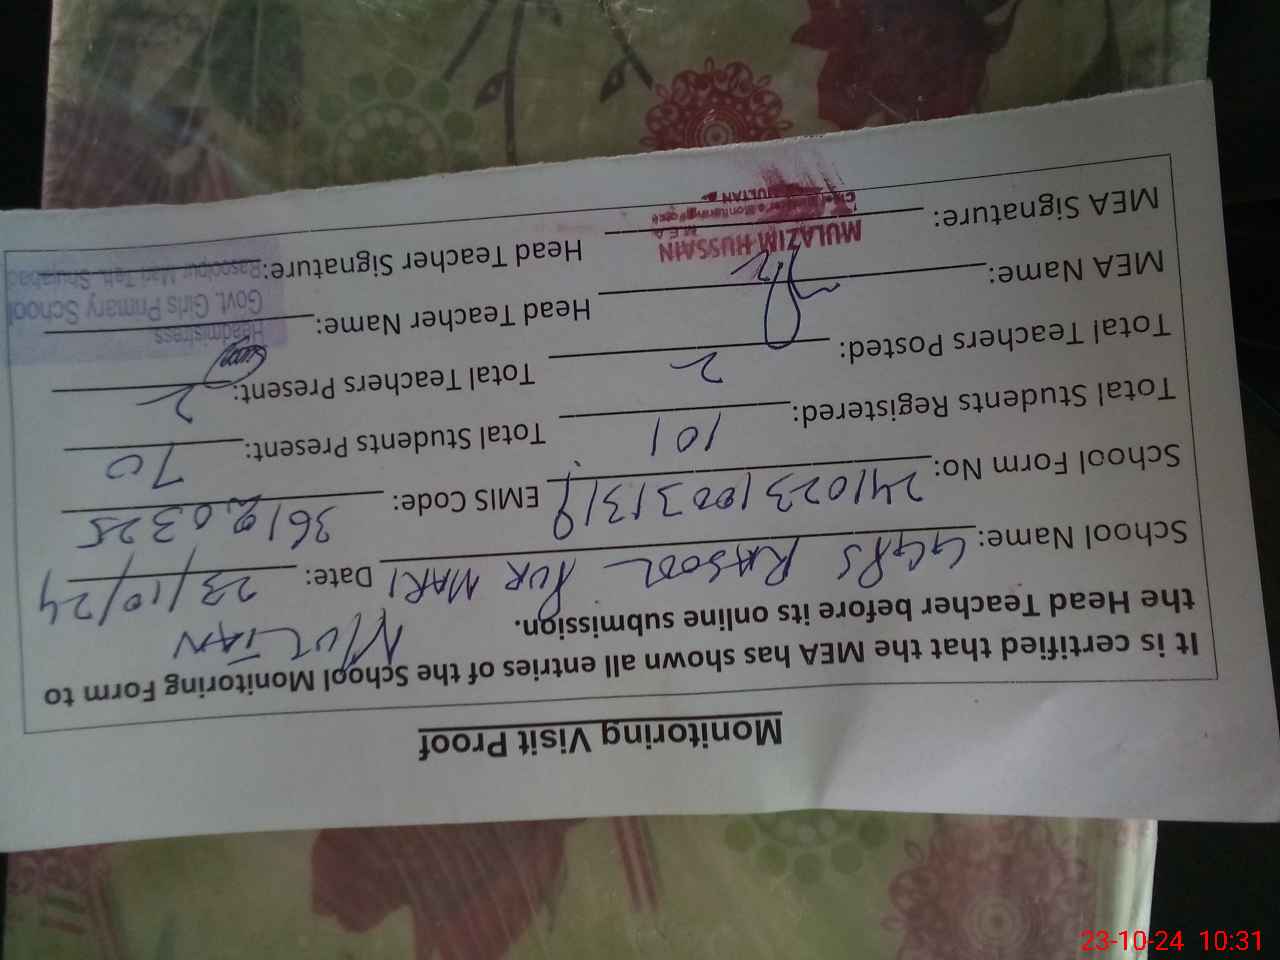 Monitoring Visit Proof
It is certified that the MEA has shown all entries of the School Monitoring Form to
the Head Teacher before its online submission.
MULTAN
School Name: GGPS RASOOL PUR MARI Date: 23/10/24
School Form No: EMIS Code: 36120325
Total Students Registered: 101 Total Students Present: 70
Total Teachers Posted: 2 Total Teachers Present: 2
MEA Name: Head Teacher Name:
Headmistress
Govt. Girls Primary School
MEA Signature: Head Teacher Signature:
Rasoolpur Mari Teh. Shujabad
MULAZIM HUSSAIN
M.E.A
Monitoring Force
MULTAN
23-10-24 10:31